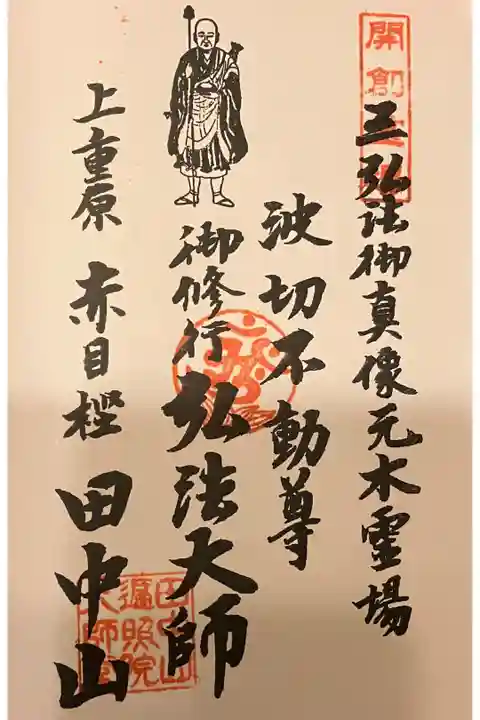 三弘法御真像元木霊場
波切不動尊
御修行弘法大師
上重原 赤目樫 田中山
田中山
遍照院
大師堂